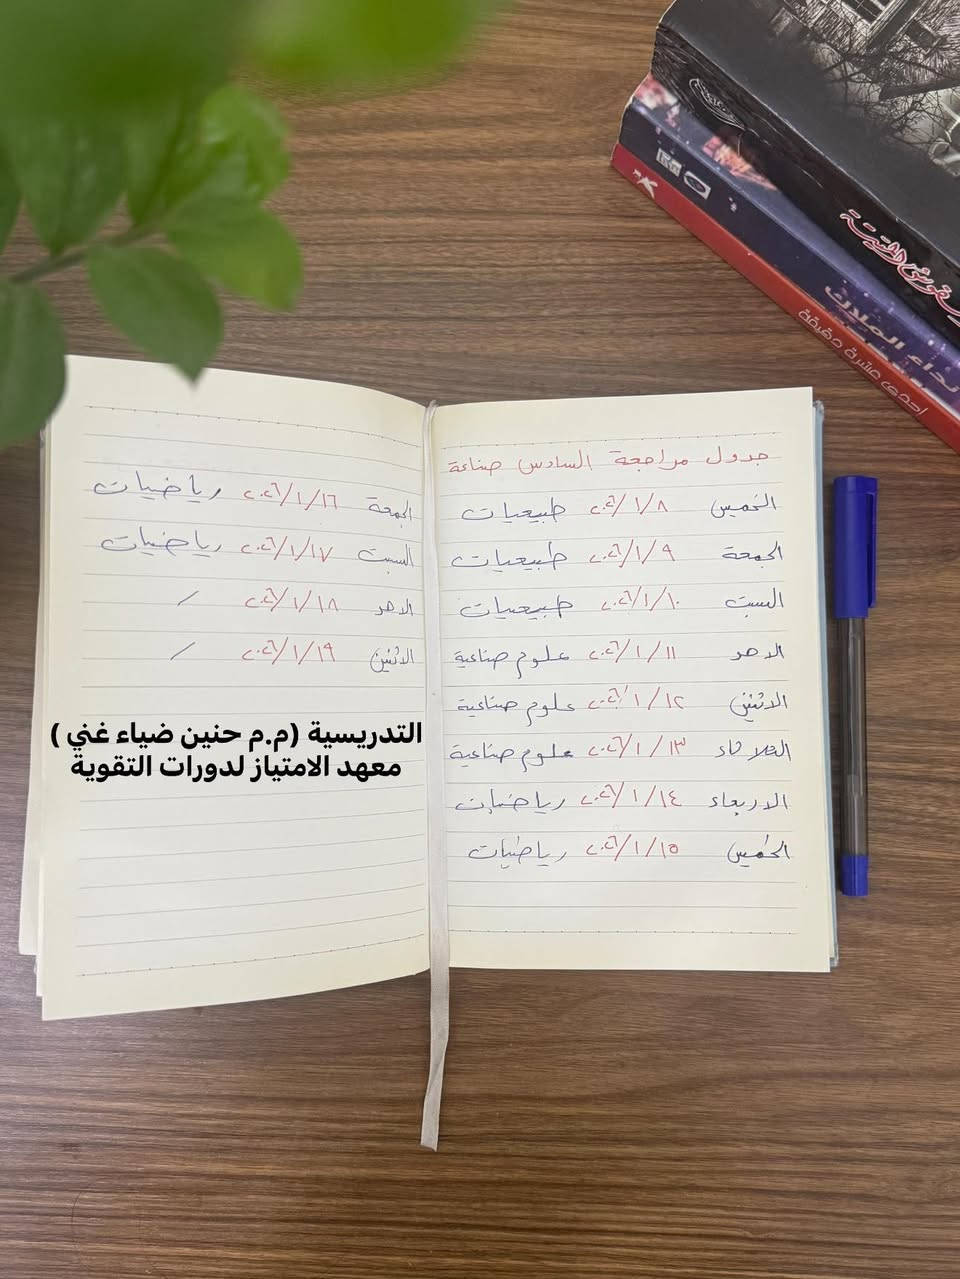 جدول مراجعة السادس صناعة
الخميس ٢٠٢٦/١/٨ طبيعيات
الجمعة ٢٠٢٦/١/٩ طبيعيات
السبت ٢٠٢٦/١/١٠ طبيعيات
الاحد ٢٠٢٦/١/١١ علوم صناعية
الاثنين ٢٠٢٦/١/١٢ علوم صناعية
الثلاثاء ٢٠٢٦/١/١٣ علوم صناعية
الاربعاء ٢٠٢٦/١/١٤ رياضيات
الخميس ٢٠٢٦/١/١٥ رياضيات
الجمعة ٢٠٢٦/١/١٦ رياضيات
السبت ٢٠٢٦/١/١٧ رياضيات
الاحد ٢٠٢٦/١/١٨ /
الاثنين ٢٠٢٦/١/١٩ /
التدريسية (م.م حنين ضياء غني )
معهد الامتياز لدورات التقوية
نداء الملاك
إحدى عشرة دقيقة